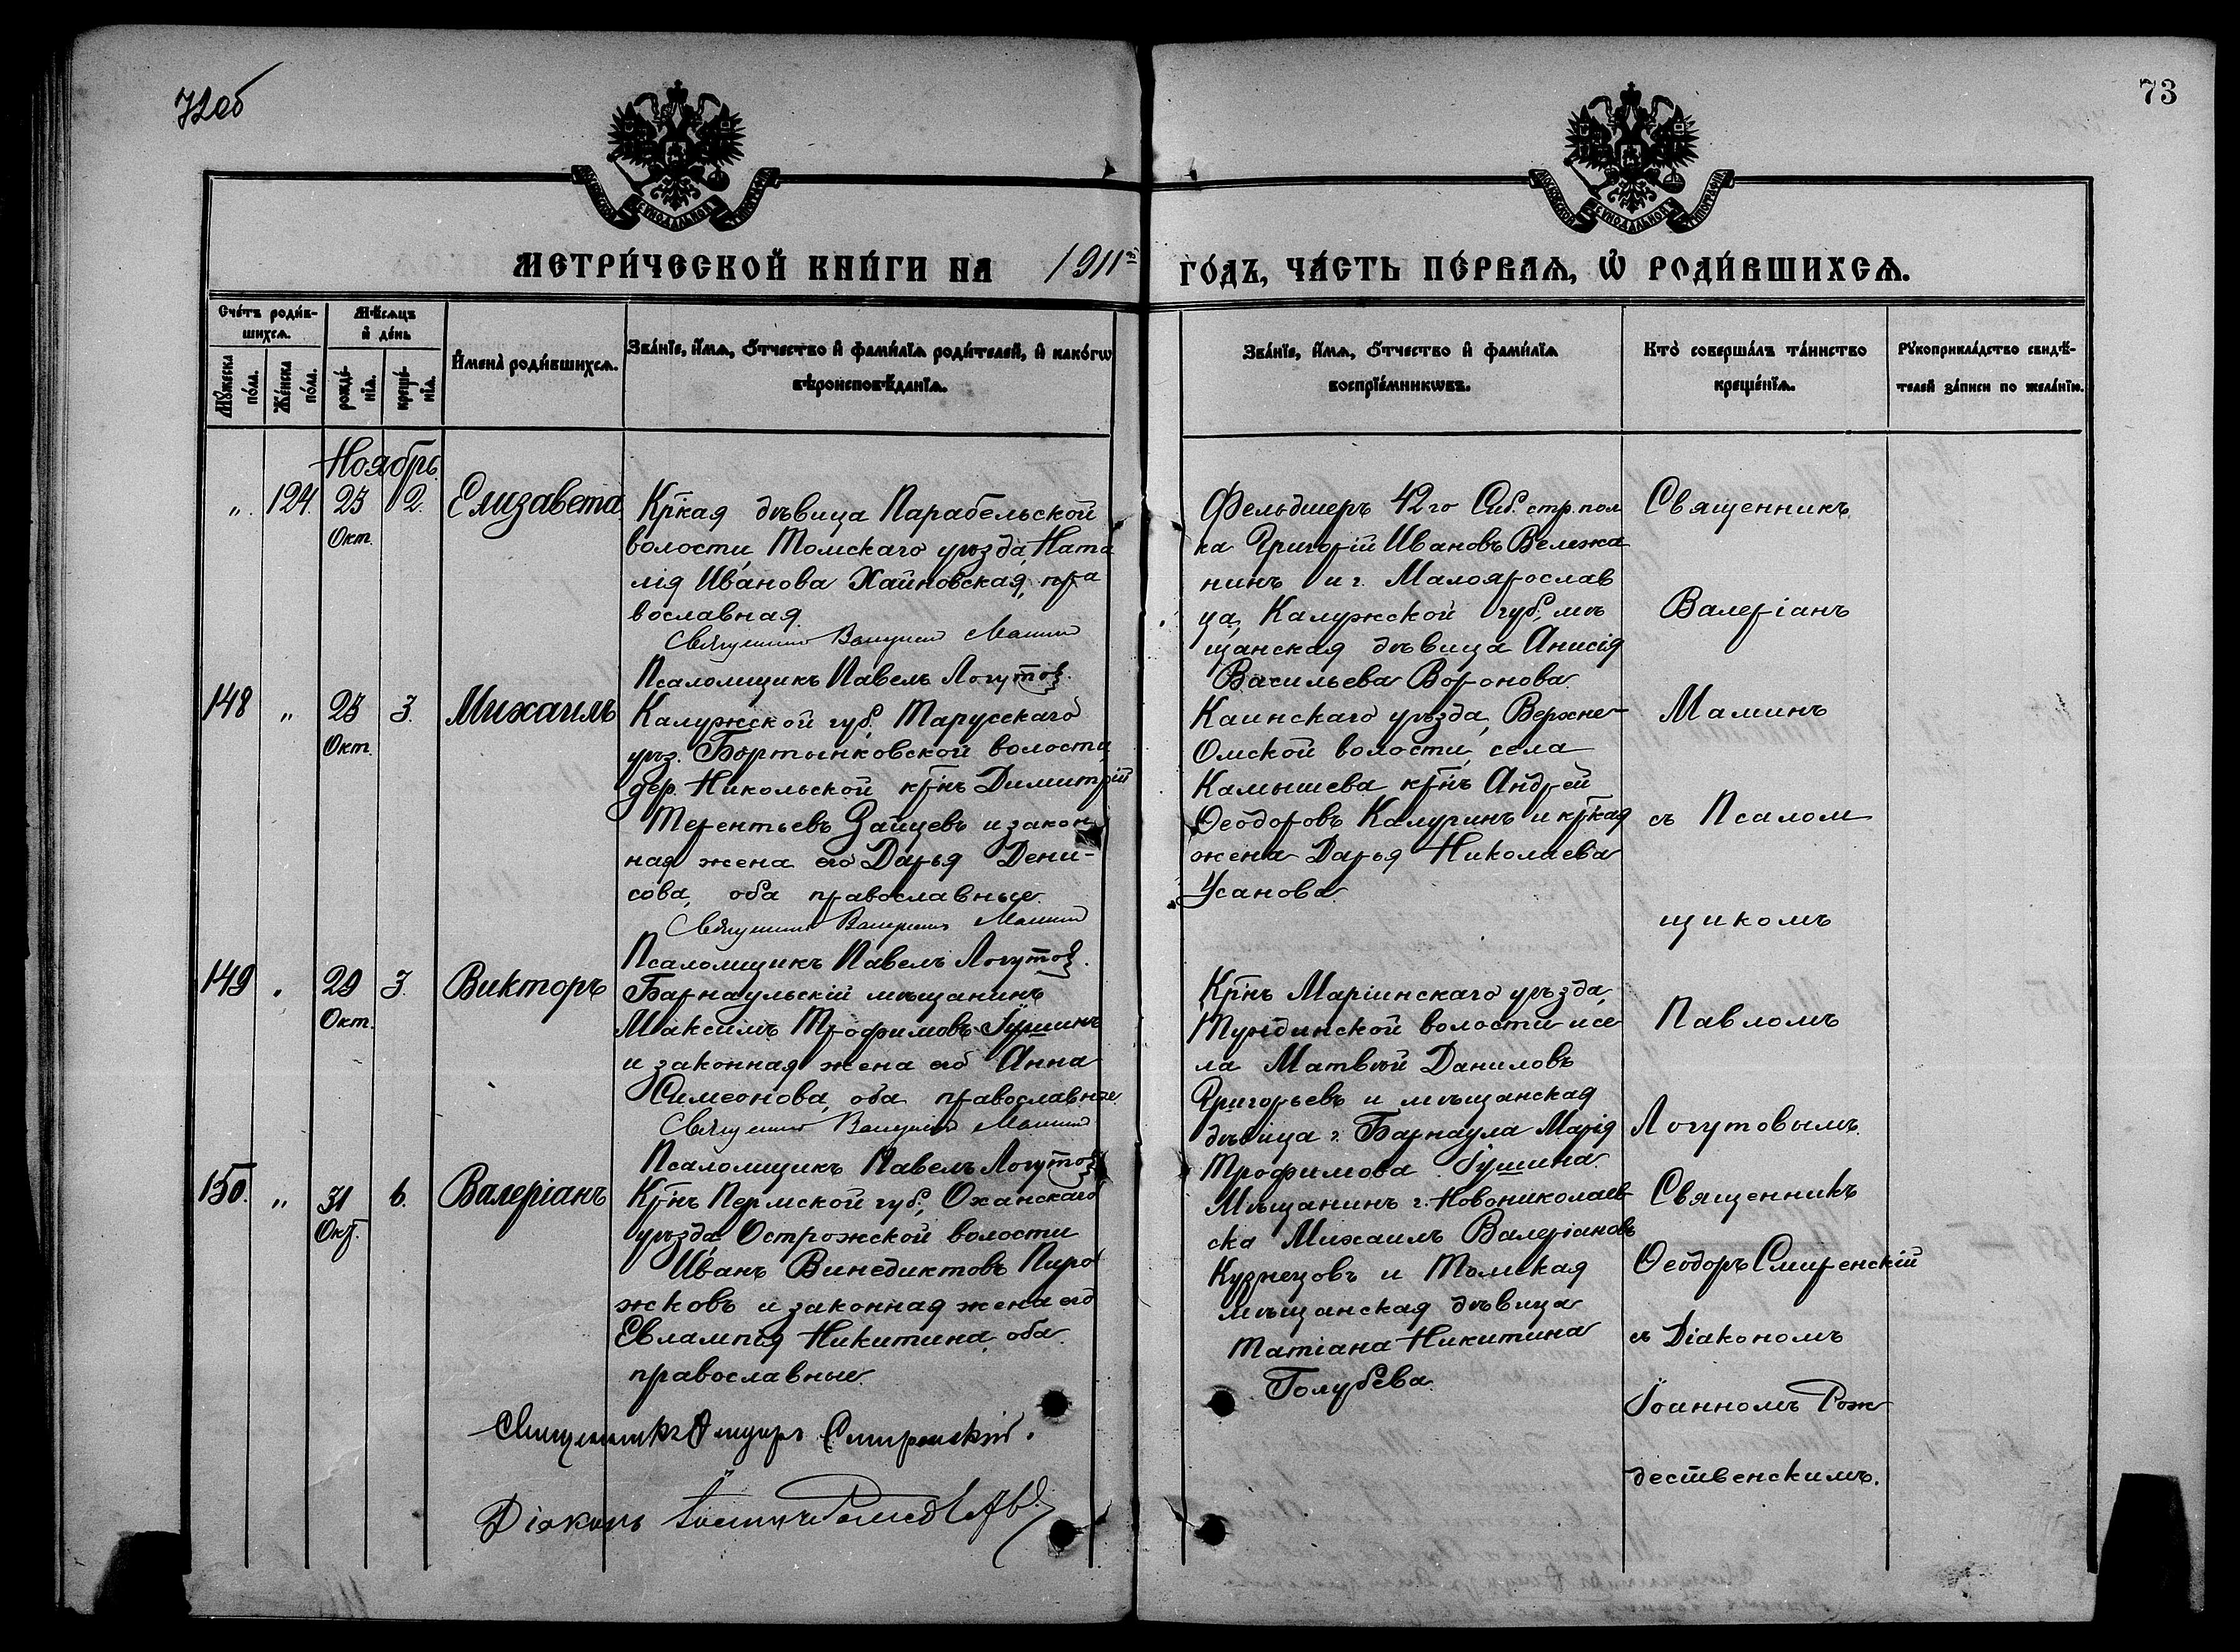 72об
73
МОСКОВСКОЙ СѴНОДАЛЬНОЙ ТИПОГРАФІИ
МОСКОВСКОЙ СѴНОДАЛЬНОЙ ТИПОГРАФІИ
МЕТРИ́ЧЕСКОЙ КНИ́ГИ НА 1911й
ГО́ДЪ, ЧА́СТЬ ПЕ́РВАѦ, Ѡ РОДИ́ВШИХСѦ.
Сче́тъ роди́в-
шихсѧ.
Мꙋ́жеска по́ла.
Же́нска по́ла.
Мѣ́сѧцъ
и҆ де́нь
рожде́-
нїѧ.
креще́-
нїѧ.
И҆мена̀ роди́вшихсѧ.
Зва́нїе, и҆́мѧ, ѻ҆́тчество и҆ фами́лїѧ роди́телей, и҆ како́гѡ
вѣроисповѣ́данїѧ.
Зва́нїе, и҆́мѧ, ѻ҆́тчество и҆ фами́лїѧ
воспрїе́мникѡвъ.
Кто̀ соверша́лъ та́инство
креще́нїѧ.
Рꙋкоприкла́дство свидѣ́-
телей за́писи по жела́нїю.
Ноябрь
„ 124. 25 2. Елизавета
Окт.
Кр̃кая дѣвица Парабельской
волости, Томскаго уѣзда, Ната
лія Иванова Хайновская, пра
вославная.
Священникъ Валеріанъ Маминъ
Псаломщикъ Павелъ Логутов.
Фельдшеръ 42го Сиб. стр. пол
ка Григорій Ивановъ Вележа
нинъ и г. Малоярослав
ца, Калужской губ., мѣ
щанская дѣвица Анисія
Васильева Воронова.
Священникъ
Валеріанъ
148 „ 25 3. Михаилъ
Окт.
Калужской губ., Тарусскаго
уѣз. Бортынковской волости,
дер. Никольской кр̃нъ Димитрій
Терентьевъ Зайцевъ и закон
ная жена его Дарья Дени-
сова, оба православные.
Священникъ Валеріанъ Маминъ
Псаломщикъ Павелъ Логутов.
Каинскаго уѣзда, Верхне-
Омской волости, села
Камышева кр̃нъ Андрей
Ѳеодоровъ Калугинъ и кр̃кая
жена Дарья Николаева
Усанова.
Маминъ
съ Псалом
щикомъ
149 „ 29 3. Викторъ
Окт.
Барнаульскій мѣщанинъ
Максимъ Трофимовъ Гушинъ
и законная жена его Анна
Симеонова, оба православные.
Священникъ Валеріанъ Маминъ
Псаломщикъ Павелъ Логутов
Кр̃нъ Маріинскаго уѣзда,
волости и се
ла Матвѣй Даниловъ
Григорьевъ и мѣщанская
дѣвица г. Барнаула Марія
Трофимова Гушина.
Павломъ
Логутовымъ.
150. „ 31 6. Валеріанъ
Окт.
Кр̃нъ Пермской губ., Оханскаго
уѣзда, Острожской волости
Иванъ Винедиктовъ Пиро
жковъ и законная жена его
Евлампія Никитина, оба
православные.
Священникъ Ѳеодоръ Смиренскій.
Діаконъ Іоаннъ
Мѣщанинъ г. Новониколаев
ска Михаилъ Валеріановъ
Кузнецовъ и Томская
мѣщанская дѣвица
Татіана Никитина
Голубева.
Священникъ
Ѳеодоръ Смиренскій
съ Діакономъ
Іоанномъ Рож
дественскимъ.